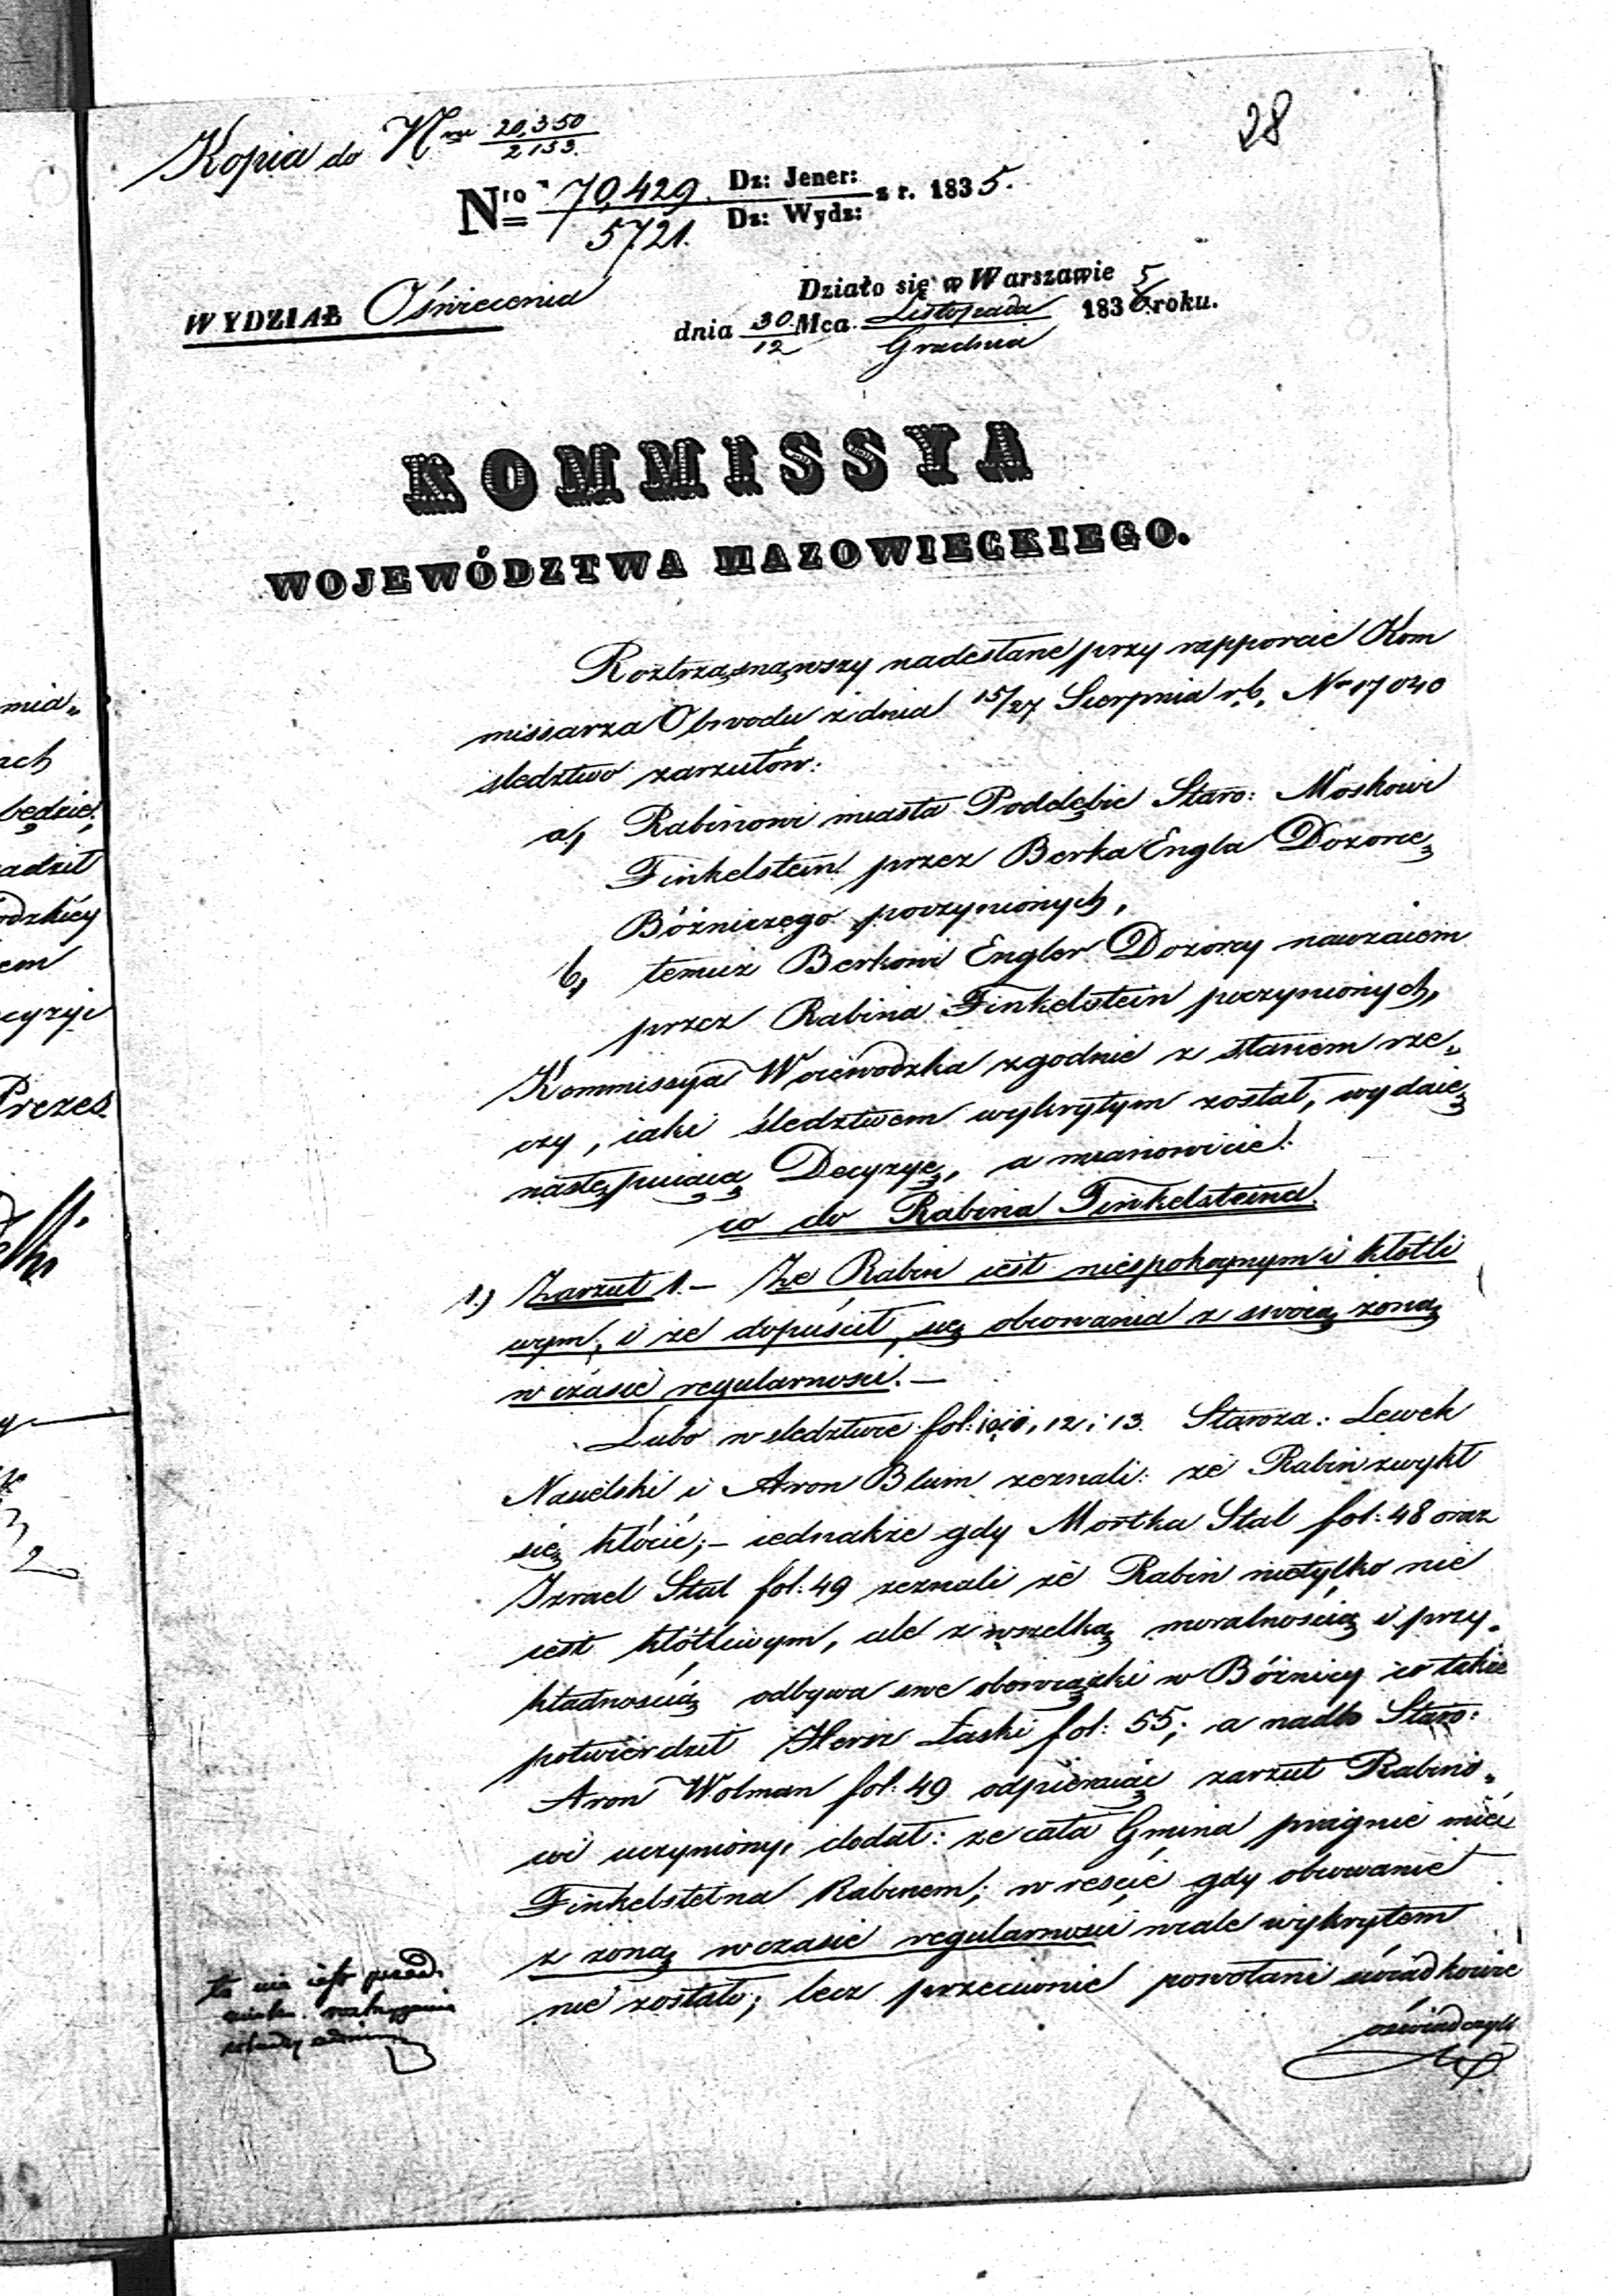 28
Kopia do Nru 20,350
2153.
Nro 70,429. Dz: Jener: z r. 1835.
5721. Dz: Wydz:
WYDZIAŁ Oświecenia
Działo się w Warszawie
dnia 30 Mca Listopada 1835 roku.
12 Grudnia
KOMMISSYA
WOJEWÓDZTWA MAZOWIECKIEGO.
Roztrząsnąwszy nadesłane przy rapporcie Kom
missarza Obwodu z dnia 15/27 Sierpnia r.b. Nr 17040
sledztwo zarzutów:
a, Rabinowi miasta Poddębic Staro: Moskowi
Finkelstein przez Berka Engla Dozorcę
Bóżniczego poczynionych,
b, temuż Berkowi Engler Dozorcy nawzaiem
przez Rabina Finkelstein poczynionych,
Kommissya Woiewodzka zgodnie z stanem rze„
czy, iaki śledztwem wykrytym został, wydaie
następuiącą Decyzyę, a mianowicie:
co do Rabina Finkelsteina.
1.) Zarzut 1. – Że Rabin iest niespokoynym i kłótli
wym, i że dopuścił się obcowania z swoią żoną
w czasie regularności. –
Lubo w sledztwie fol: 12 i 13 Staroza: Lewek
Nasielski i Aron Blum zeznali: że Rabin zwykł
się kłócić; – iednakże gdy Mośtka Stal fol: 48 oraz
Izrael Stal fol: 49 zeznali że Rabin nietylko nie
iest kłótliwym, ale z wszelką moralnością i przy„
kładnością odbywa swe obowiązki w Bóżnicy co także
potwierdził Hersz Łaski fol: 55; a nadto Staro:
Aron Wolman fol: 49 odpieraiąc zarzut Rabino„
wi uczyniony, dodał: że cała Gmina pragnie mieć
Finkelsteina Rabinem; w reście gdy obcowanie
z żoną w czasie regularności wcale wykrytem
nie zostało; lecz przeciwnie powołani świadkowie
oświadczyli
to nie iest
mia„
ach
będzie
adził
odzkiey
em
cyzyi
Prezes